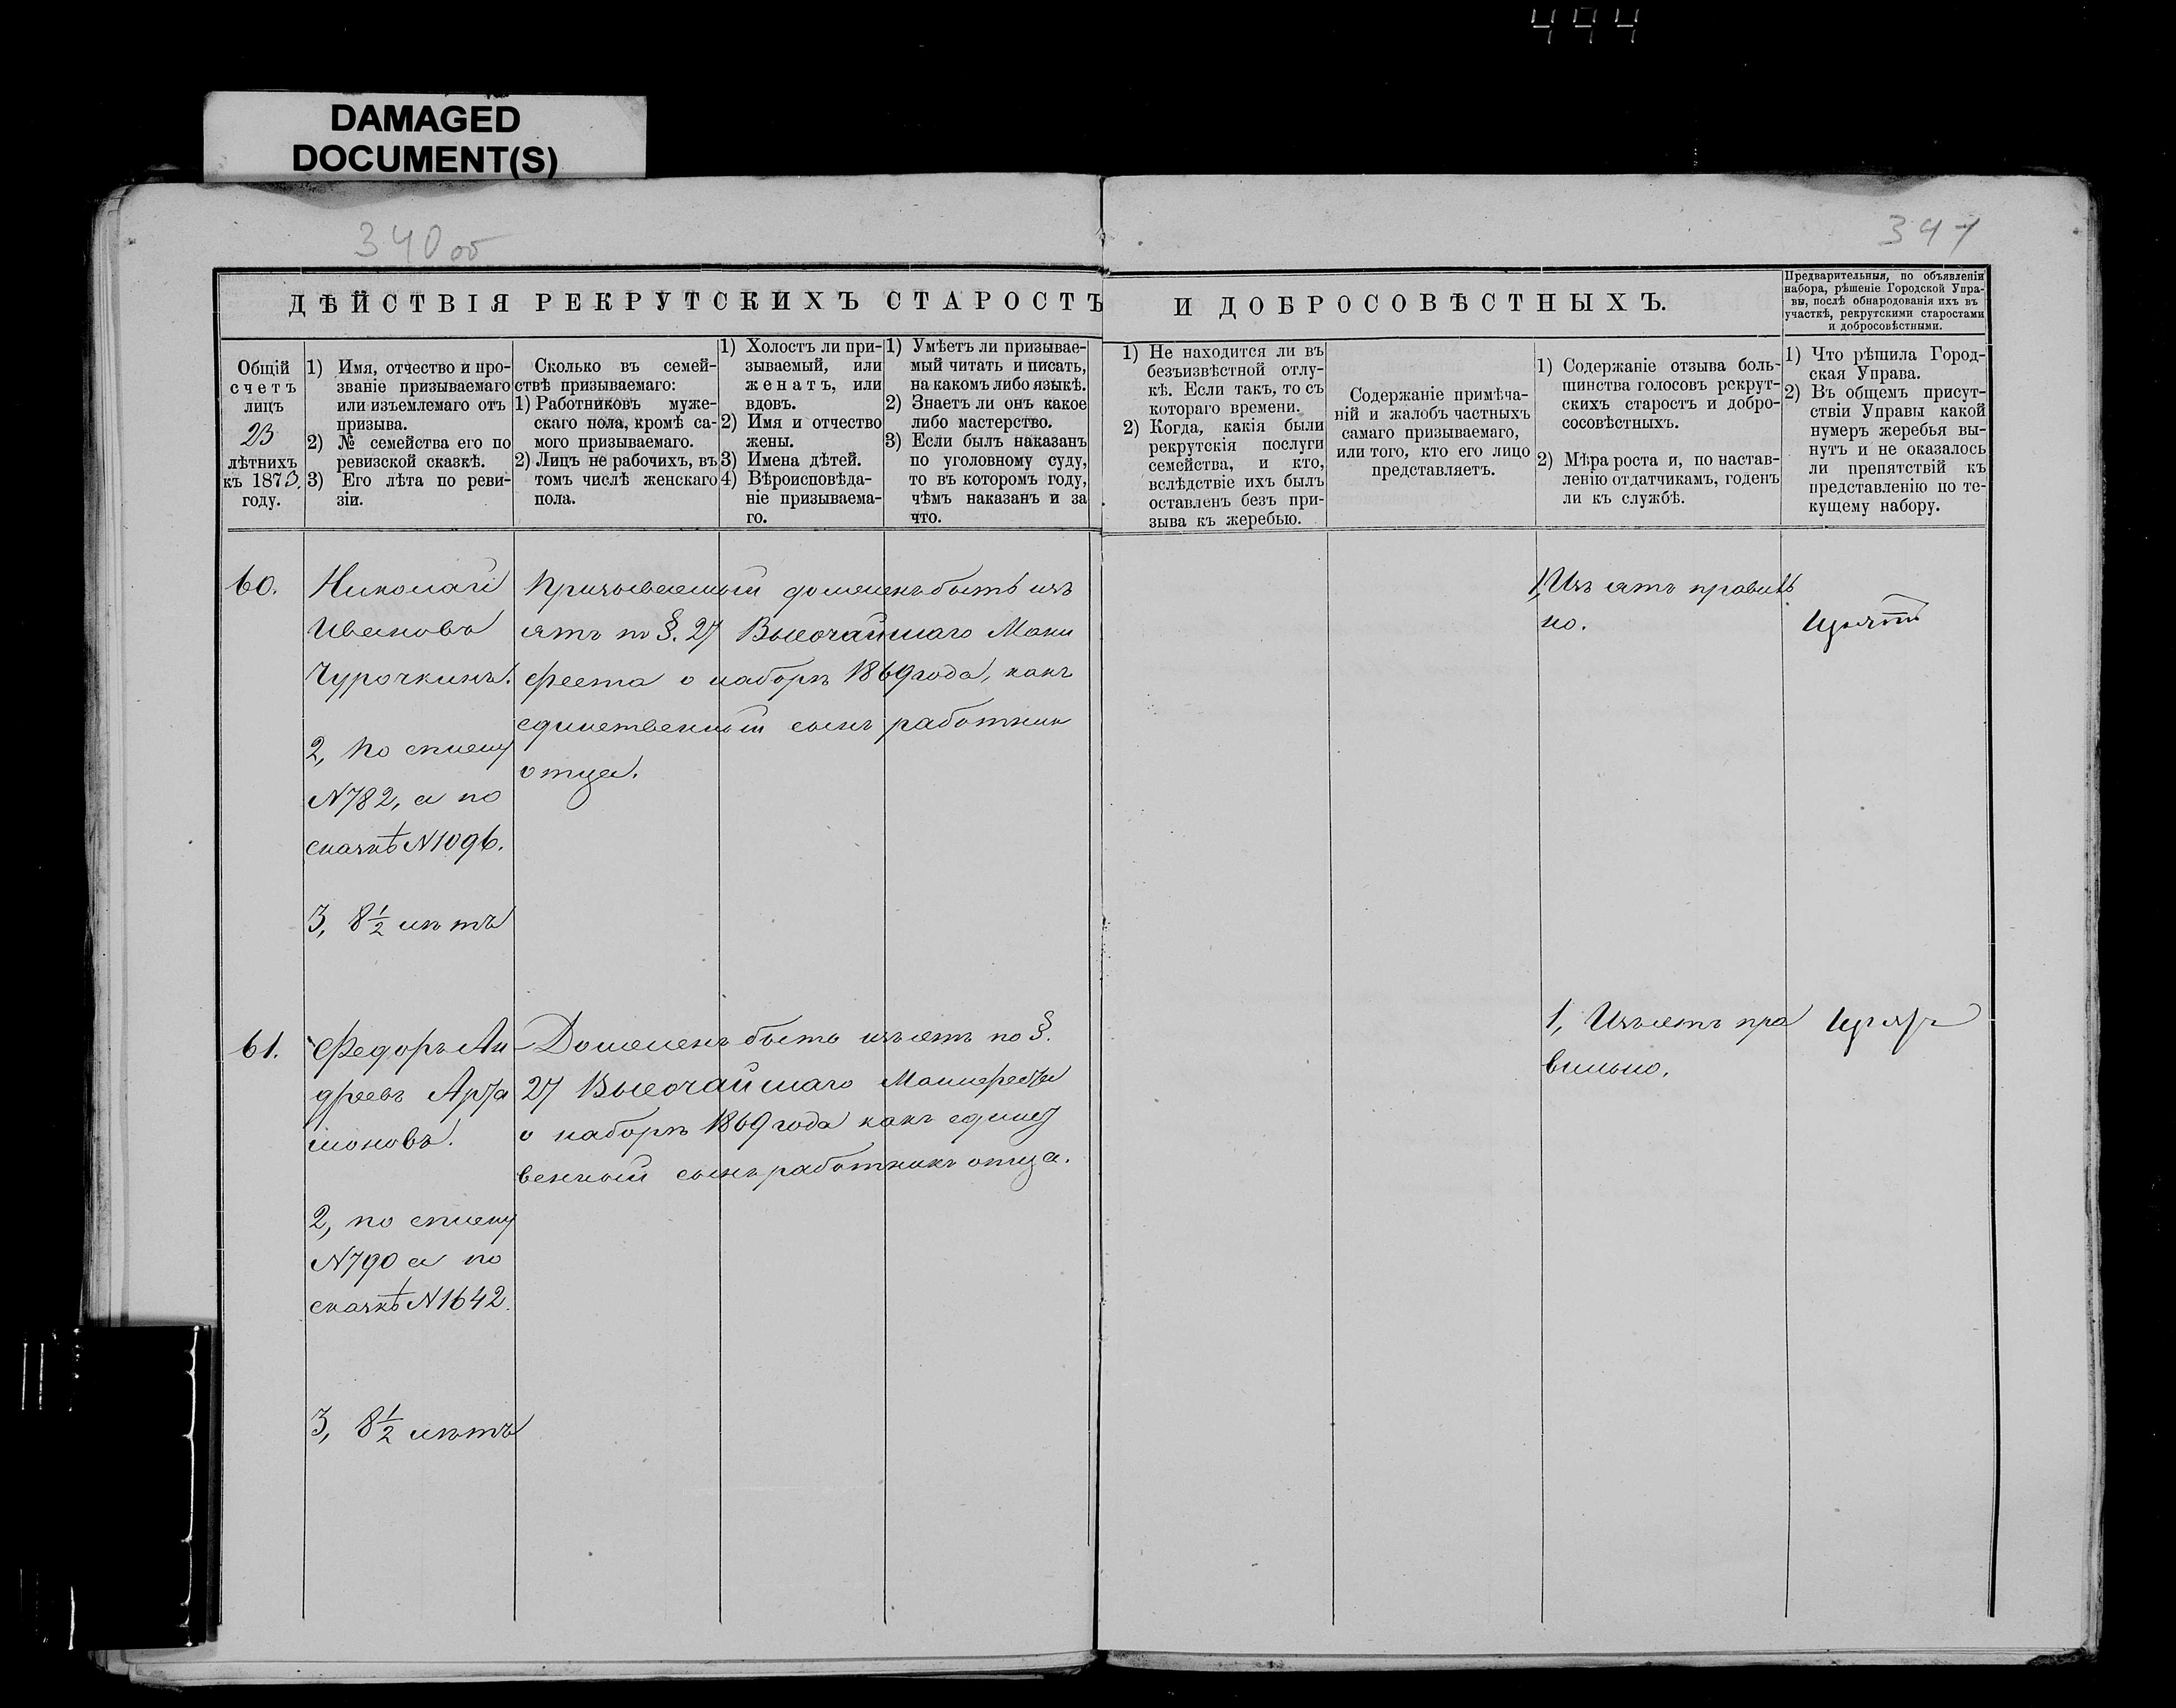 444
DAMAGED
DOCUMENT(S)
340 об
341
ДѢЙСТВІЯ РЕКРУТСКИХЪ СТАРОСТЪ
И ДОБРОСОВѢСТНЫХЪ.
Предварительныя, по объявленіи
набора, рѣшеніе Городской Упра-
вы, послѣ обнародованія ихъ въ
участкѣ, рекрутскими старостами
и добросовѣстными.
Общій
счетъ
лицъ
23
лѣтнихъ
къ 1873.
году.
1) Имя, отчество и про-
званіе призываемаго
или изъемлемаго отъ
призыва.
2) № семейства его по
ревизской сказкѣ.
3) Его лѣта по реви-
зіи.
Сколько въ семей-
ствѣ призываемаго:
1) Работниковъ муже-
скаго пола, кромѣ са-
мого призываемаго.
2) Лицъ не рабочихъ, въ
томъ числѣ женскаго
пола.
1) Холостъ ли при-
зываемый, или
женатъ, или
вдовъ.
2) Имя и отчество
жены.
3) Имена дѣтей.
4) Вѣроисповѣда-
ніе призываема-
го.
1) Умѣетъ ли призывае-
мый читать и писать,
на какомъ либо языкѣ.
2) Знаетъ ли онъ какое
либо мастерство.
3) Если былъ наказанъ
по уголовному суду,
то въ которомъ году,
чѣмъ наказанъ и за
что.
1) Не находится ли въ
безъизвѣстной отлу-
кѣ. Если такъ, то съ
котораго времени.
2) Когда, какія были
рекрутскія послуги
семейства, и кто,
вслѣдствіе ихъ былъ
оставленъ безъ при-
зыва къ жеребью.
Содержаніе примѣча-
ній и жалобъ частныхъ
самаго призываемаго,
или того, кто его лицо
представляетъ.
1) Содержаніе отзыва боль-
шинства голосовъ рекрут-
скихъ старостъ и добро-
совѣстныхъ.
2) Мѣра роста и, по настав-
ленію отдатчикамъ, годенъ
ли къ службѣ.
1) Что рѣшила Город-
ская Управа.
2) Въ общемъ присут-
ствіи Управы какой
нумеръ жеребья вы-
нутъ и не оказалось
ли препятствій къ
представленію по те-
кущему набору.
60.
Николай
Ивановъ
Чурочкинъ.
2, По списку
N782, а по
сказкѣ N1096.
3, 8½ лѣтъ
Призываемый долженъ быть изъ
ятъ по §. 27 Высочайшаго Мани
феста о наборѣ 1869 года, какъ
единственный сынъ работник
отца.
1, Изъятъ правиль
но.
Изъятъ
61.
Федоръ Ан
дреевъ Арта
моновъ.
2, по списку
N790 а по
сказкѣ N1642.
3, 8½ лѣтъ
Долженъ быть изъятъ по §.
27 Высочайшаго Манифеста
о наборѣ 1869 года какъ единст
венный сынъ работникъ отца.
1, Изъятъ пра
вильно.